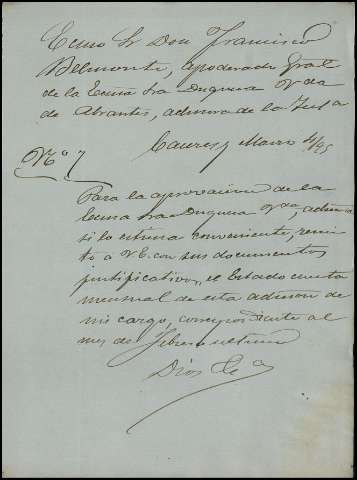 Exmo Sr Don Francisco
Belmonte, apoderado Gral
de la Exma Sra Duquesa Vda
de Abrantes, admora de la Tutla
Caceres y Marzo 4/95
No 7
Para la aprovacion de la
Exma Sra Duquesa Vda,
si lo estima conveniente, remi
to a V.E. con sus documentos
justificativos, el Estado cuenta
mensual de esta admon de
mi cargo, correspondiente al
mes de Febrero ultimo
Dios &a